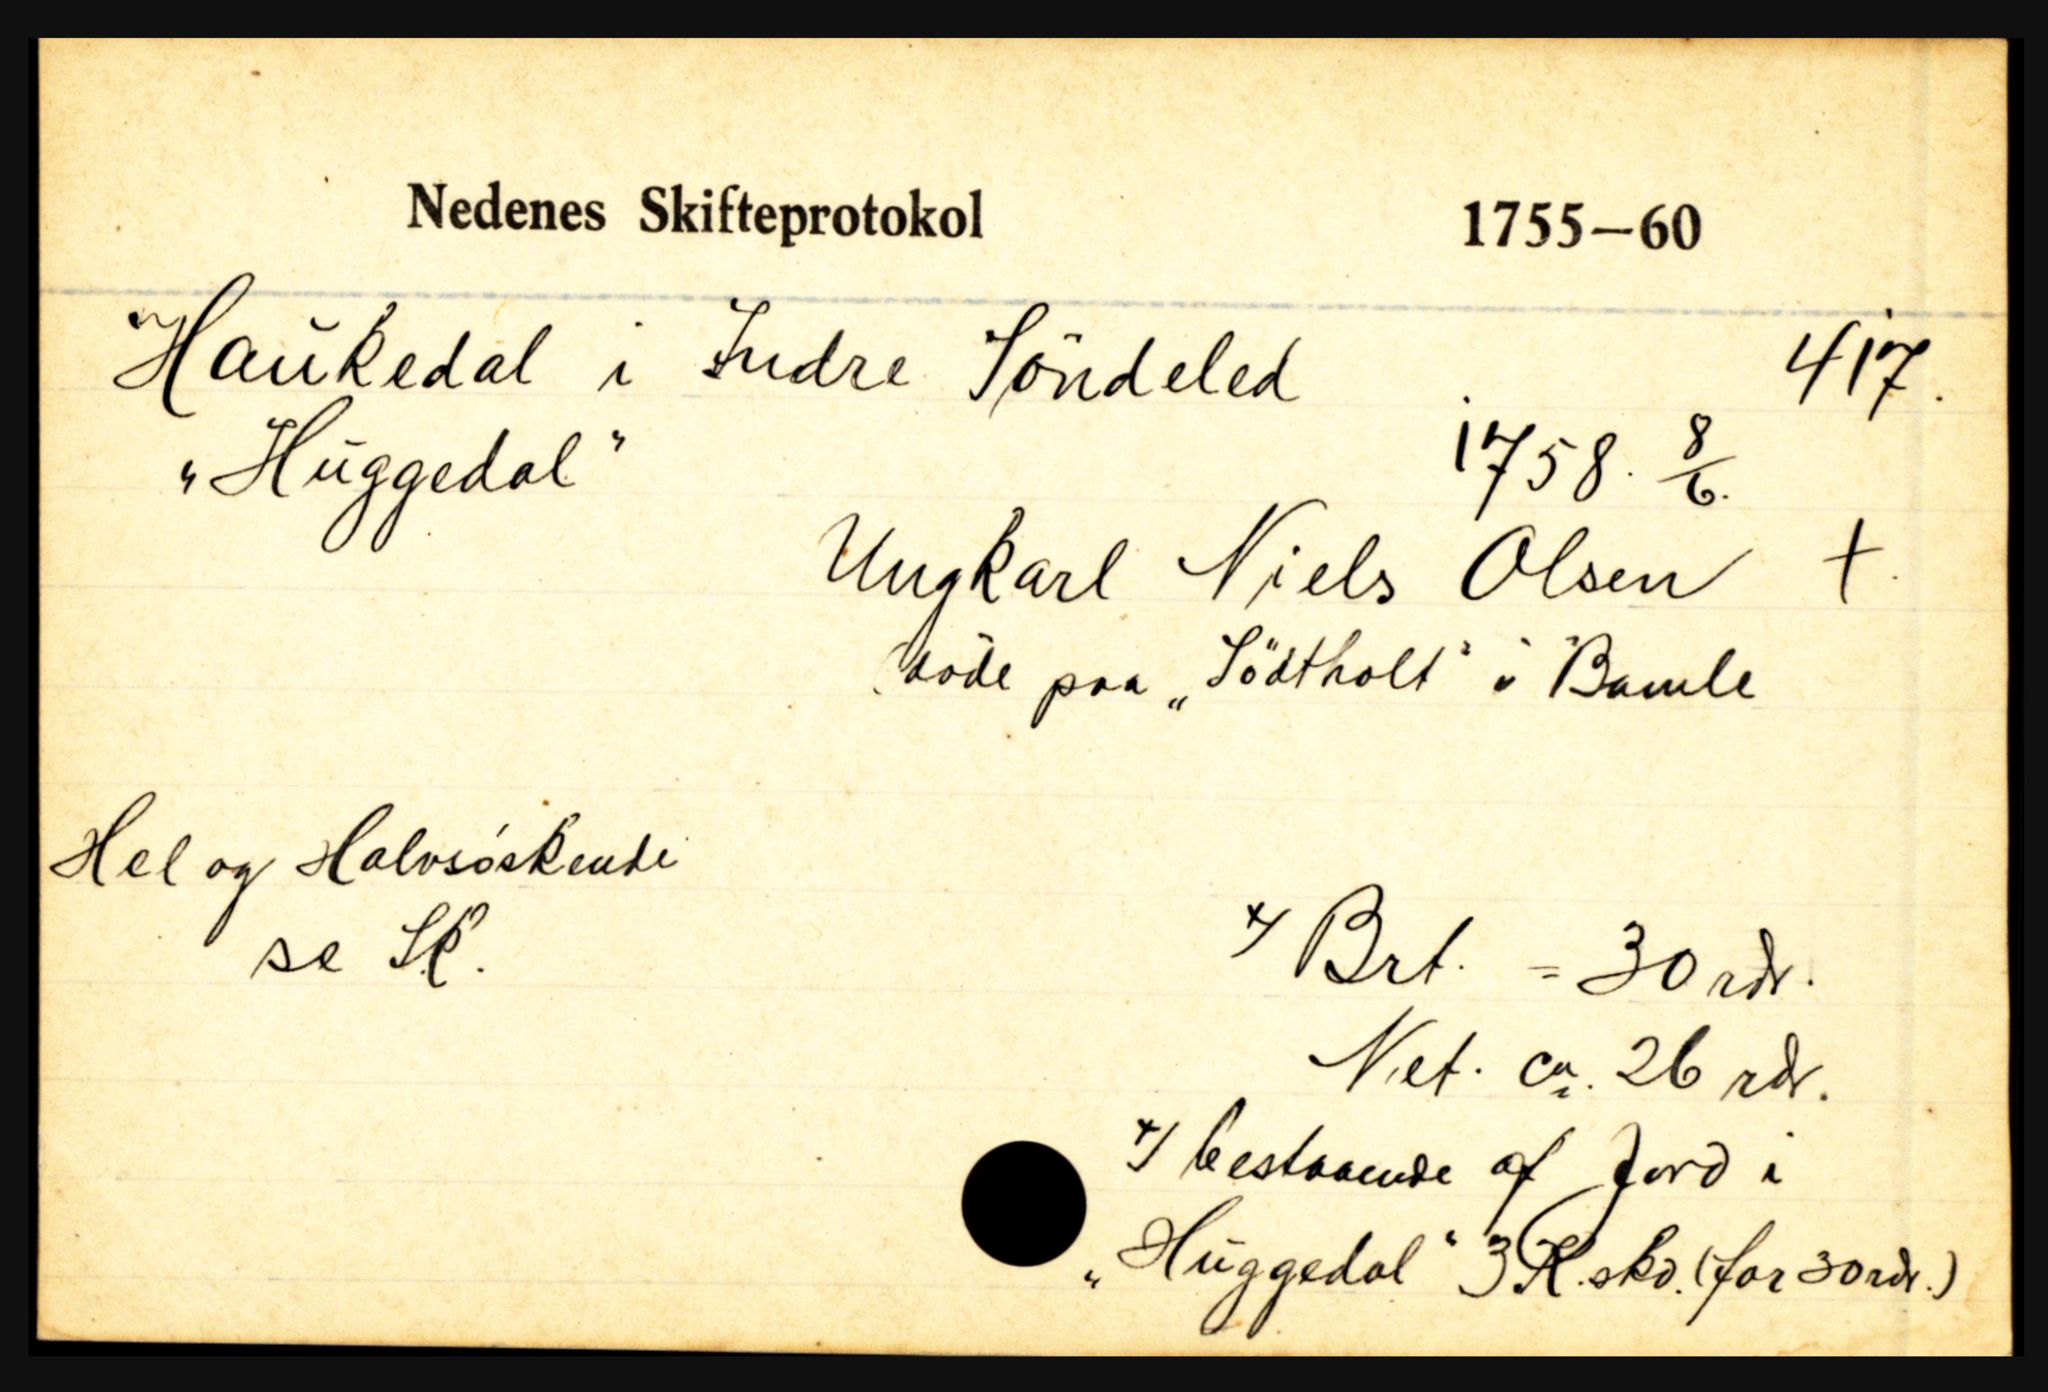 Nedenes Skifteprotokol 1755—60
Haukedal i Indre Söndeled 417.
„Huggedal" 1758. 8/6.
Ungkarl Niels Olsen +
(döde paa „Södtholt" i Bamle
Hel og Halvsöskende
se Sk.
x/ Brt. = 30 rdr.
Net. ca. 26 rdr.
x/ bestaaende af Jord i
„Huggedal" 3 K. skd. (for 30 rdr.)